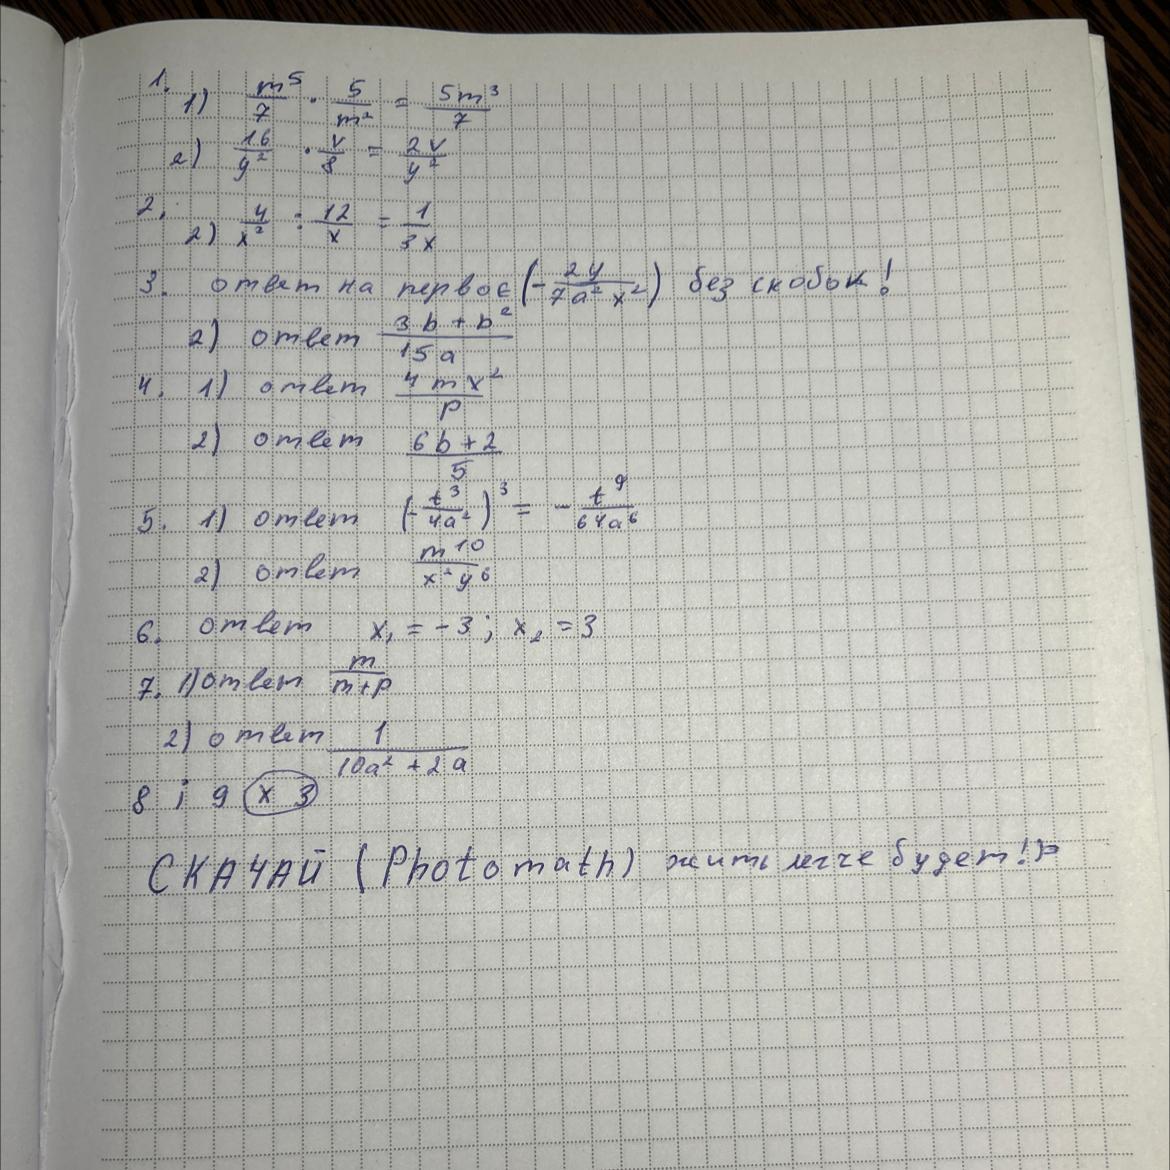 1.
1) m⁵/7 · 5/m² = 5m³/7
2) 16/y² · v/8 = 2v/y²
2.
2) 4/x² : 12/x = 1/3x
3. ответ на первое (- 2y/7a²x²) без скобок!
2) ответ 3b+b²/15a
4. 1) ответ 4mx²/p
2) ответ 6b+2/5
5. 1) ответ (- t³/4a²)³ = - t⁹/64a⁶
2) ответ m¹⁰/x²y⁶
6. ответ x₁ = -3; x₂ = 3
7. 1) ответ m/m+p
2) ответ 1/10a²+2a
8 і 9 х з
СКАЧАЙ (Photomath) жить легче будет!)